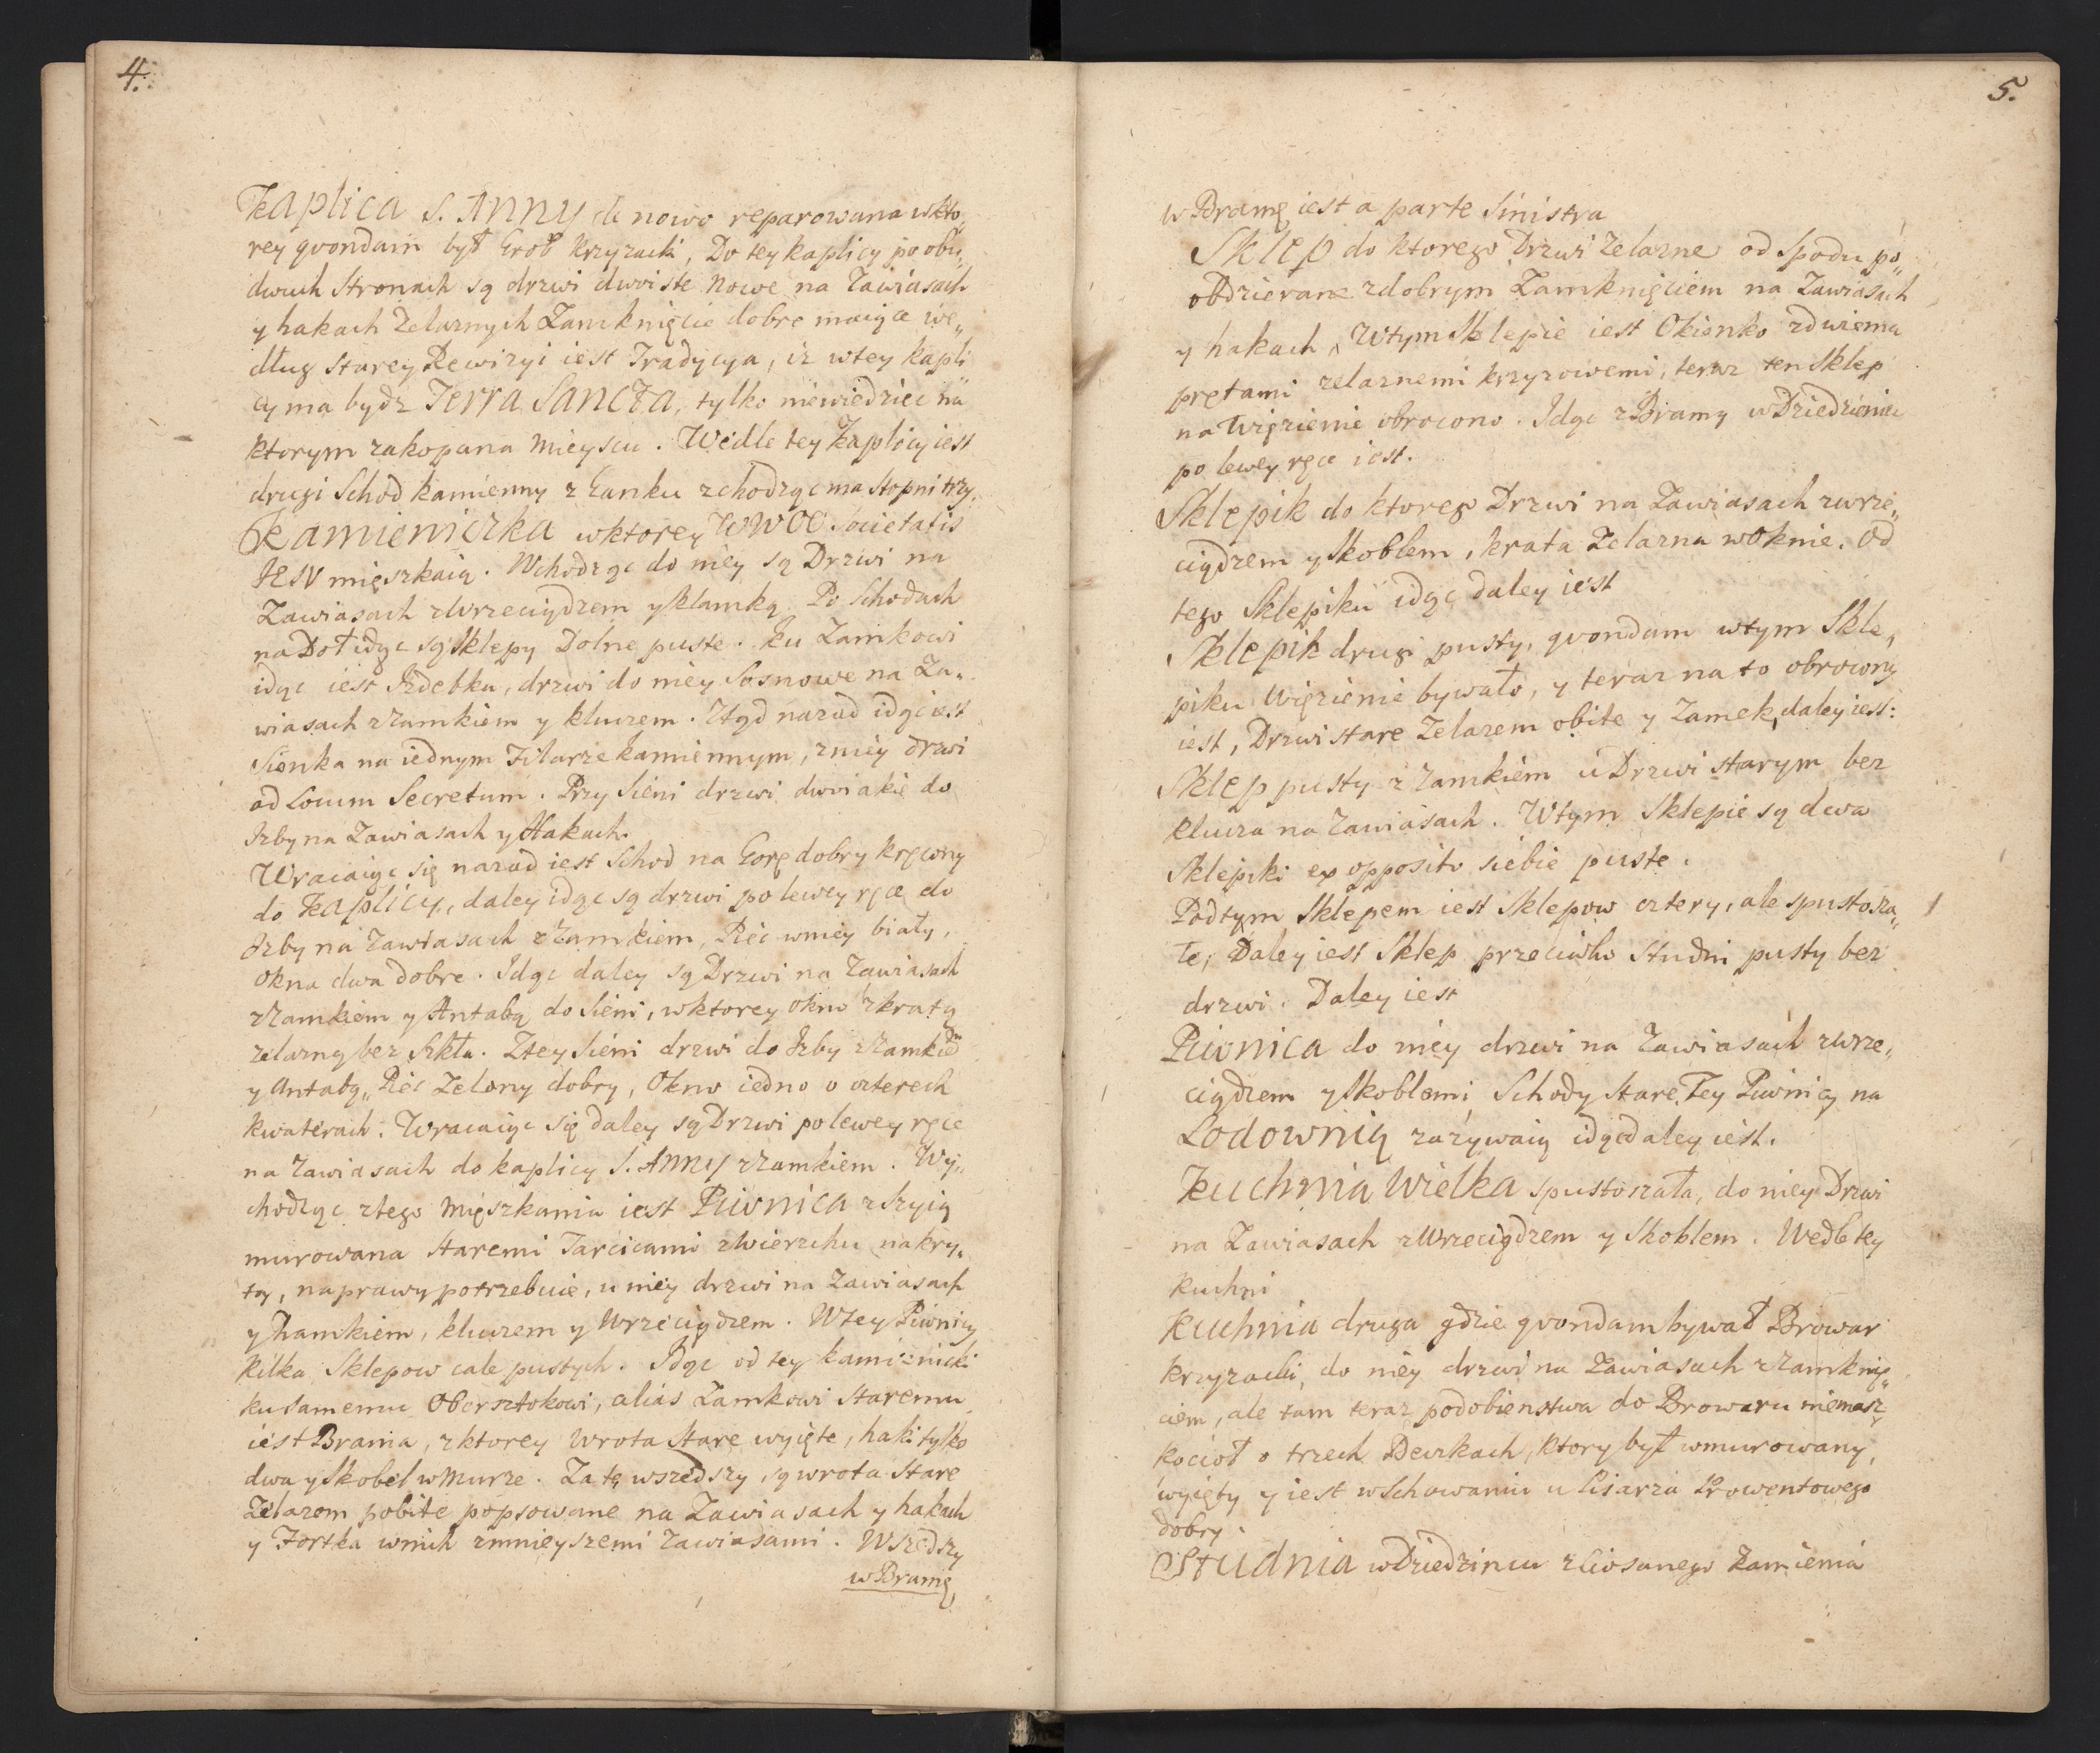 4.
Kaplica S. ANNY de nowo reparowana wkto„
rey qvondam był Grob krzyzacki, Do tey kaplicy po obu„
dwuch Stronach są drzwi dwoiste nowe na Zawiasach
y hakach Zelaznych Zamknięcie dobre maiące we„
dług starey Rewizyi iest Tradycya, iz wtey kapli
cy ma bydz Terra SANCTA, tylko niewiedziec na
ktorym zakopana mieyscu. Wedle tey Kaplicy iest
drugi Schod kamienny z Ganku zchodząc ma stopni trzy.
Kamieniczka wktorey WWOO Societatis
JESV mięszkaią. Wchodząc do niey są Drzwi na
Zawiasach zWrzeciądzem y klamką. Po Schodach
na Doł idąc są Sklepy Dolne puste. ku Zamkowi
idąc iest Izdebka, drzwi do niey Sosnowe na Za„
wiasach zZamkiem y kluczem. Ztąd nazad idąc iest
Sionka na iednym Filarze kamiennym, zniey drzwi
ad Locum Secretum. Przy Sieni drzwi dwoiakie do
Izby na Zawiasach y Hakach.
Wracaiąc się nazad iest Schod na Gorę dobry kręcony
do Kaplicy, daley idąc są drzwi po lewey ręce do
Izby na Zawiasach zZamkiem, Piec wniey biały,
okna dwa dobre. Idąc daley są Drzwi na Zawiasach
zZamkiem y Antabą do Sieni, wktorey okno zkratą
zelazną bez Szkła. Ztey Sieni drzwi do Izby zZamkie
y Antabą, Piec Zelony dobry, Okno iedno o czterech
kwaterach. Wracaiąc się daley są Drzwi po lewey ręce
na Zawiasach do kaplicy S. ANNY zZamkiem. Wy„
chodząc ztego mięszkania iest Piwnica zSzyią
murowana staremi Tarcicami zWierzchu nakry„
tą, naprawy potrzebuie, u niey drzwi na Zawiasach
y Zamkiem, kluczem y Wrzeciądzem. Wtey Piwnicy
kilka Sklepow cale pustych. Idąc od tey kamieniczki
ku samemu Obersztokowi, alias Zamkowi staremu
iest Brama, z ktorey Wrota Stare wyięte, haki tylko
dwa y Skobel w Murze. Za tę wszedszy, są wrota stare
Zelazem pobite popsowane na Zawiasach y hakach
y Fortka wnich zmnieyszemi Zawiasami. Wszedszy
w Bramę
5.
w Bramę iest a parte Sinistra
Sklep do ktorego Drzwi Zelazne od Spodu po„
obdzierane zdobrym Zamknięciem na Zawiasach
y hakach, Wtym Sklepie iest Okienko zdwiema
prętami zelaznemi krzyzowemi, teraz ten Sklep
na Więzienie obrocono. Idąc zBramy w Dziedziniec
po lewey ręce iest.
Sklepik do ktorego Drzwi na Zawiasach zwrze„
ciądzem y Skoblem, krata Zelazna w Oknie. Od
tego Sklepiku idąc daley iest
Sklepik drugi pusty, qvondam wtym Skle„
piku Więzienie bywało, y teraz na to obrocony
iest, Drzwi stare Zelazem obite y Zamek, daley iest:
Sklep pusty z Zamkiem u Drzwi starym bez
klucza na Zawiasach. Wtym Sklepie są dwa
Sklepiki ex opposito siebie puste.
Pod tym Sklepem iest Sklepow cztery, ale spustosza„
łe, Daley iest Sklep przeciwko Studni pusty bez
drzwi. Daley iest
Piwnica do niey drzwi na Zawiasach zwrze„
ciądzem y Skoblem, Schody Stare, Tey Piwnicy na
Lodownią zazywaią idąc daley iest.
Kuchnia Wielka spustoszała, do niey Drzwi
na Zawiasach zWrzeciądzem y Skoblem. Wedle tey
kuchni
Kuchnia druga gdzie qvondam bywał Browar
krzyzacki, do niey drzwi na Zawiasach zZamknię„
ciem, ale tam teraz podobienstwa do Browaru niemasz
kocioł o trzech Beczkach, ktory był wmurowany,
wyięty y iest wSchowaniu u Pisarza Prowentowego
dobry.
Studnia w Dziedzincu z Ciosanego kamienia